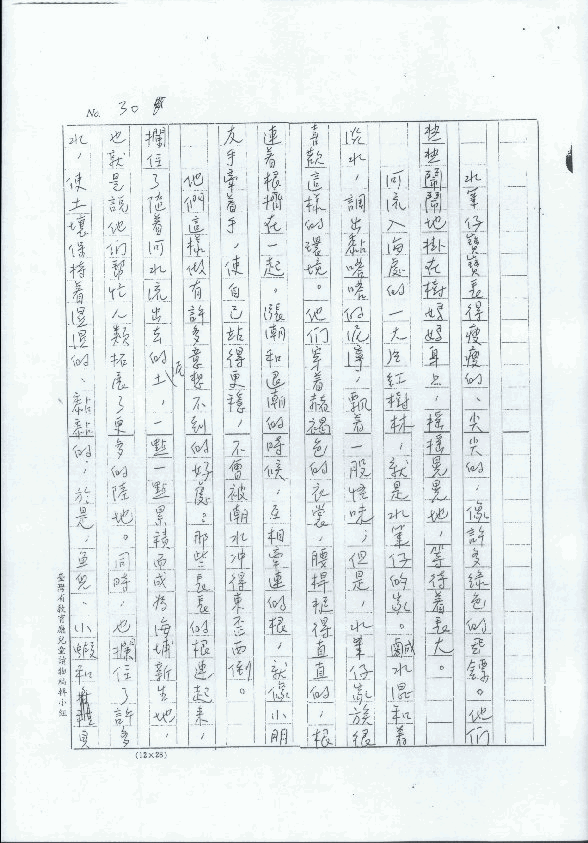 No. 30
水筆仔寶寶長得瘦瘦的、尖尖的，像許多綠色的飛鏢。他們
熱熱鬧鬧地掛在樹媽媽身上，搖搖晃晃地，等待著長大。
河流入海處的一大片紅樹林，就是水筆仔的家。鹹水混和着
淡水，調出黏嗒嗒的泥濘，飄着一股怪味；但是，水筆仔家族很
喜歡這樣的環境。他們穿着赭褐色的衣裳，腰桿挺得直直的，根
連着根擠在一起。漲潮和退潮的時候，互相牽連的根，就像小朋
友手牽着手，使自己站得更穩，不會被潮水沖得東歪西倒。
他們這樣做有許多意想不到的好處。那些長長的根連起來，
攔住了隨着河水流出去的泥土，一點一點累積而成為海埔新生地，
也就是說他們幫忙人類拓展了更多的陸地。同時，也攔住了許多
水，使土壤保持着溼溼的、黏黏的；於是，魚兒、小蝦和
臺灣省教育廳兒童讀物編輯小組
(12×25)